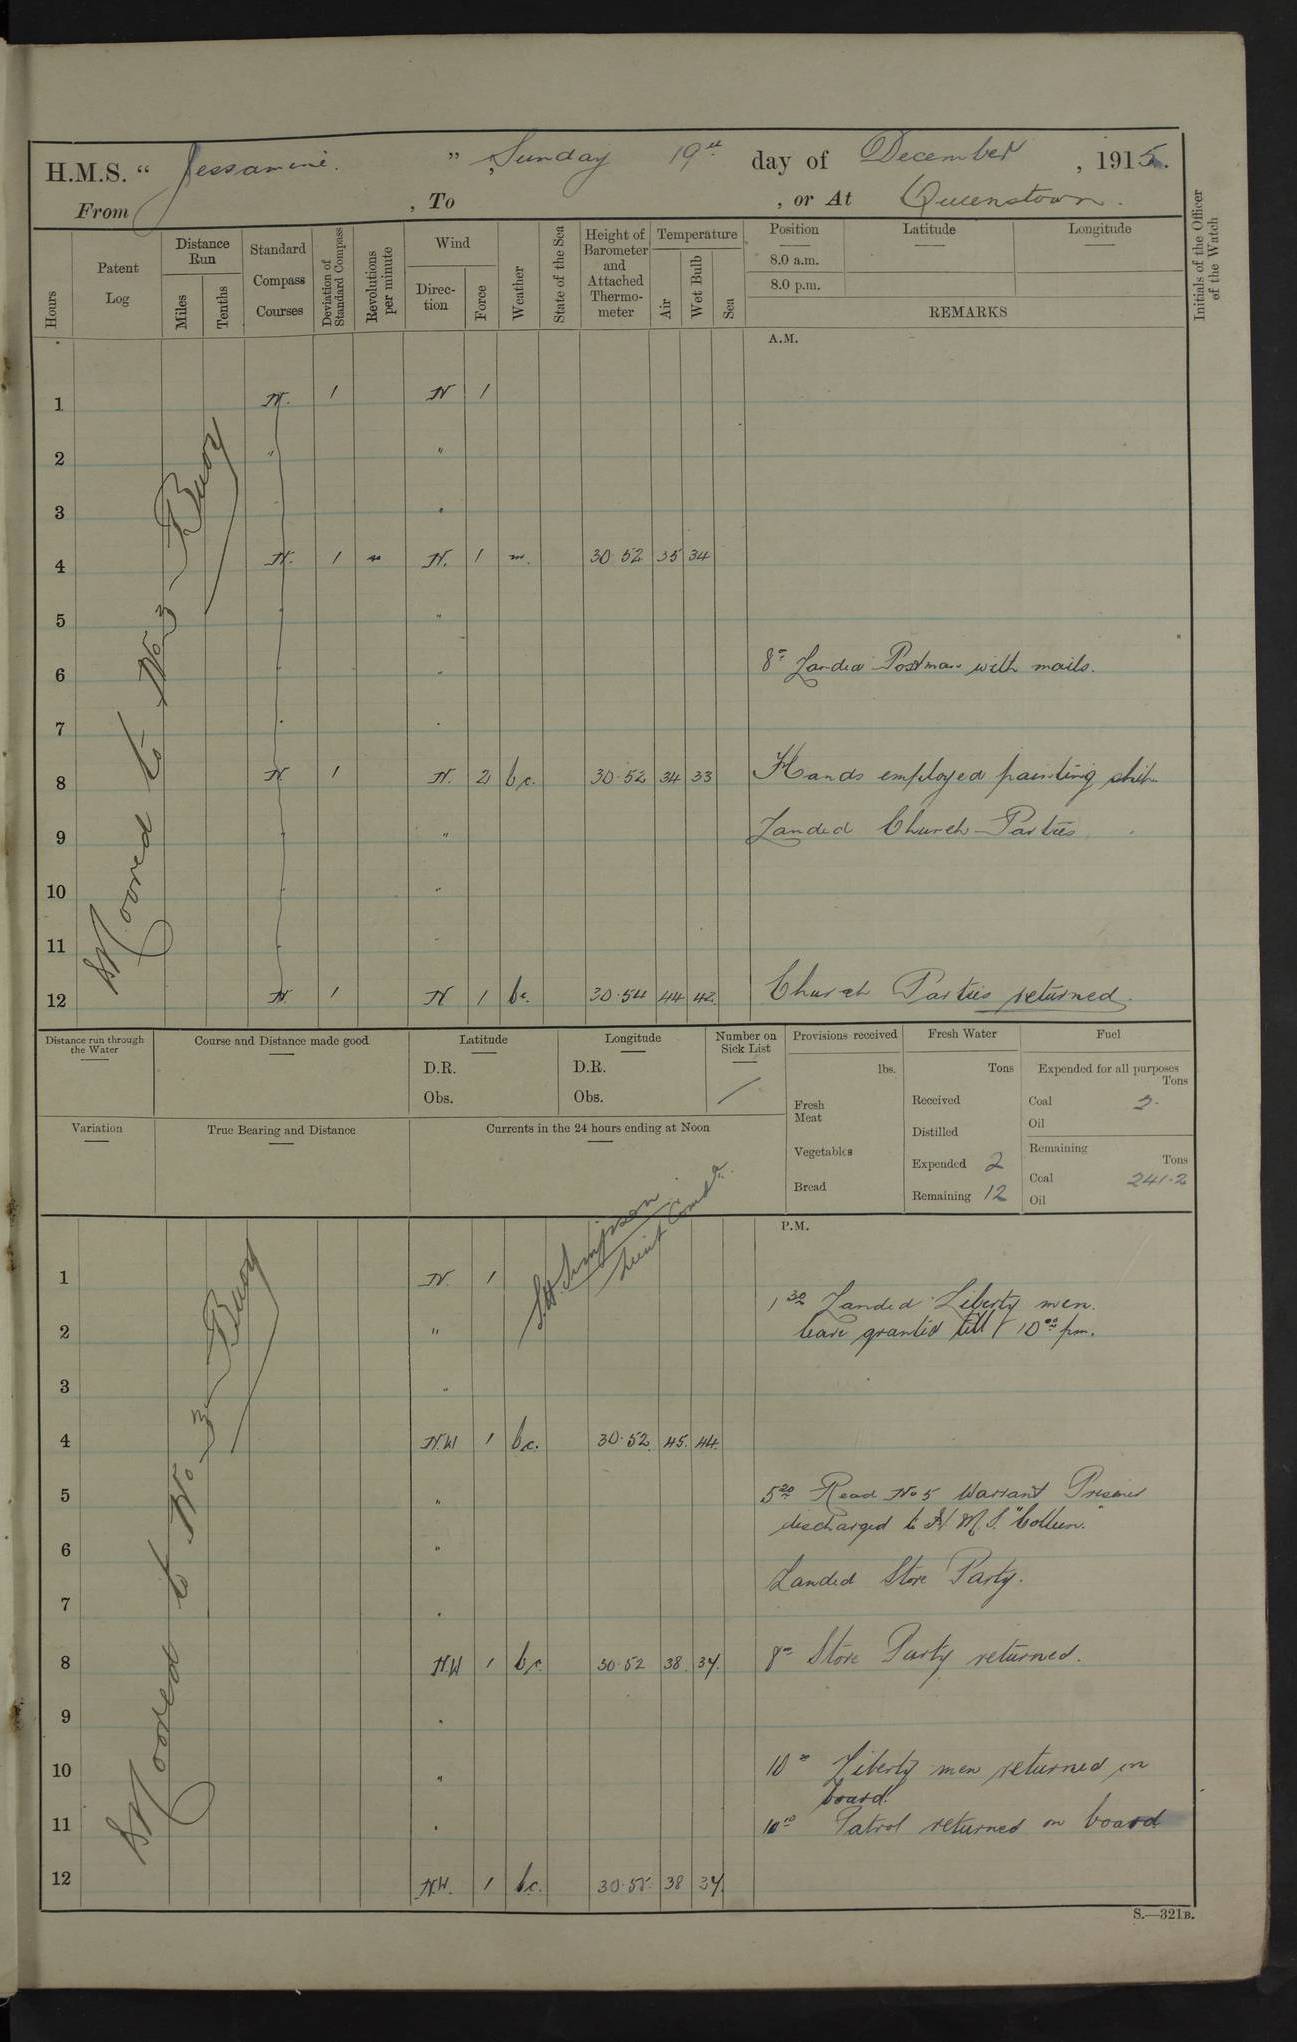 H.M.S. “ Jessamine. ”, Sunday 19th day of December, 1915.
From , To , or At Queenstown.
Hours
Patent Log
Distance Run
Miles
Tenths
Standard Compass Courses
Deviation of Standard Compass
Revolutions per minute
Wind
Direction
Force
Weather
State of the Sea
Height of Barometer and Attached Thermometer
Temperature
Air
Wet Bulb
Sea
Position
8.0 a.m.
8.0 p.m.
Latitude
Longitude
REMARKS
Initials of the Officer of the Watch
A.M.
Moored to No 3 Buoy
1 N. 1 N 1
2 " "
3 "
4 N. 1 N. 1 m. 30.52 35 34
5 "
6 " 8 Landed Postman with mails.
7 "
8 N. 1 N. 2 bc. 30.52 34 33 Hands employed painting ship.
9 " Landed Church Parties
10 "
11 "
12 N. 1 N 1 bc. 30.54 44 42 Church Parties returned.
Distance run through the Water
Course and Distance made good
Latitude
D.R.
Obs.
Longitude
D.R.
Obs.
Number on Sick List
/
Provisions received
lbs.
Fresh Meat
Vegetables
Bread
Fresh Water
Tons
Received
Distilled
Expended 2
Remaining 12
Fuel
Expended for all purposes
Tons
Coal 2.
Oil
Remaining
Tons
Coal 241.2
Oil
Variation
True Bearing and Distance
Currents in the 24 hours ending at Noon
Simpson
Lieut Comdr.
P.M.
Moored to No 3 Buoy
1 N. 1
1 30 Landed Liberty men.
2 " leave granted till 10 00 pm.
3 "
4 N.W 1 bc. 30.52 45. 44.
5 " 5 20 Read No 5 Warrant Prisoner
discharged to H.M.S. "Colleen."
6 "
Landed Store Party.
7 "
8 N.W 1 bc. 30.52 38 37. 8 Store Party returned.
9 "
10 " 10 Liberty men returned on
board.
11 " 10 10 Patrol returned on board
12 N.W. 1 bc. 30.55 38 37.
S.—321B.